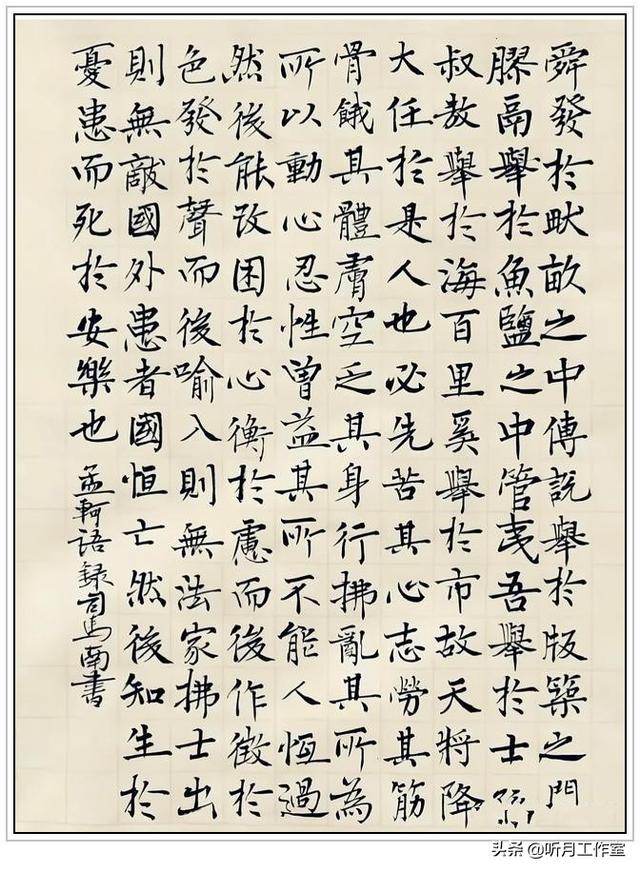 舜發於畎畝之中傳說舉於版築之門
膠鬲舉於魚鹽之中管夷吾舉於士孫
叔敖舉於海百里奚舉於市故天將降
大任於是人也必先苦其心志勞其筋
骨餓其體膚空乏其身行拂亂其所為
所以動心忍性曾益其所不能人恆過
然後能改困於心衡於慮而後作徵於
色發於聲而後喻入則無法家拂士出
則無敵國外患者國恒亡然後知生於
憂患而死於安樂也 孟軻語録司馬南書
头条@听月工作室